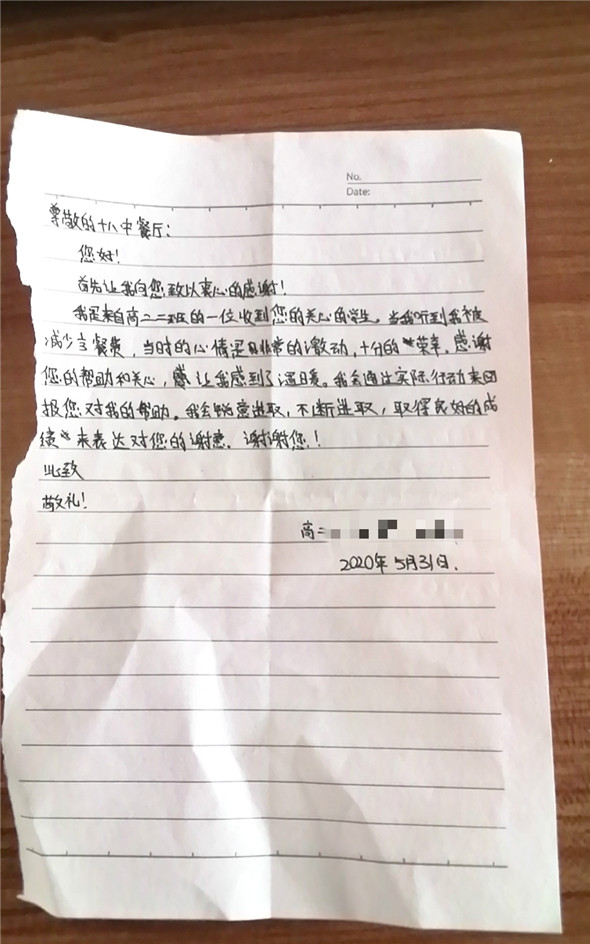 No.
Date:
尊敬的十八中餐厅:
您好!
首先让我向您致以衷心的感谢!
我是来自高二二班的一位收到您的关心的学生。当我听到我被
减少了餐费,当时的心情是非常的激动,十分的荣幸,感谢
您的帮助和关心,让我感到了温暖。我会通过实际行动来回
报您对我的帮助。我会锐意进取,不断进取,取得良好的成
绩来表达对您的谢意。谢谢您!
此致
敬礼!
高二
2020年5月31日.